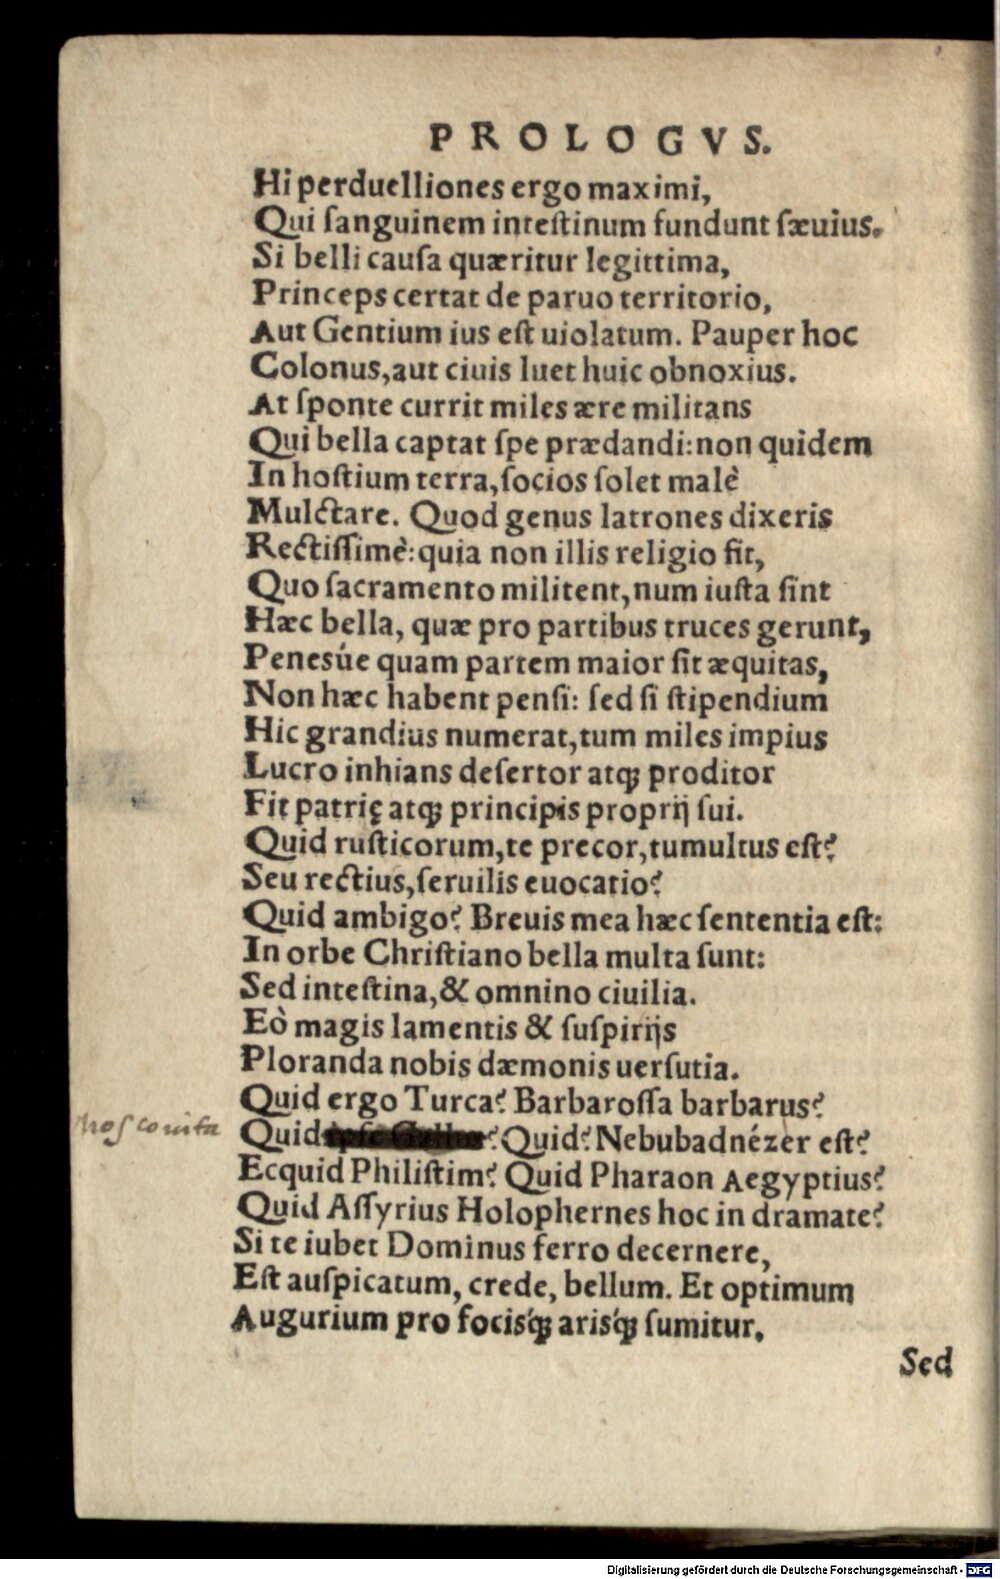 PROLOGVS.
Hi perduelliones ergo maximi,
Qui ſanguinem inteſtinum fundunt ſæuius.
Si belli cauſa quæritur legittima,
Princeps certat de paruo territorio,
Aut Gentium ius eſt uiolatum. Pauper hoc
Colonus, aut ciuis luet huic obnoxius.
At ſponte currit miles ære militans
Qui bella captat ſpe prædandi: non quidem
In hoſtium terra, ſocios ſolet malè
Mulctare. Quod genus latrones dixeris
Rectiſſimè: quia non illis religio fit,
Quo ſacramento militent, num iuſta ſint
Hæc bella, quæ pro partibus truces gerunt,
Penesúe quam partem maior ſit æquitas,
Non hæc habent penſi: ſed ſi ſtipendium
Hic grandius numerat, tum miles impius
Lucro inhians deſertor atꝗ proditor
Fit patrię atꝗ principis proprij ſui.
Quid ruſticorum, te precor, tumultus eſt?
Seu rectius, ſeruilis euocatio?
Quid ambigo? Breuis mea hæc ſententia eſt:
In orbe Chriſtiano bella multa ſunt:
Sed inteſtina, & omnino ciuilia.
Eò magis lamentis & ſuſpirijs
Ploranda nobis dæmonis uerſutia.
Quid ergo Turca? Barbaroſſa barbarus?
Moſcouita Quid ipſe Gallus? Quid? Nebubadnézer eſt?
Ecquid Philiſtim? Quid Pharaon Aegyptius?
Quid Aſſyrius Holophernes hoc in dramate?
Si te iubet Dominus ferro decernere,
Eſt auſpicatum, crede, bellum. Et optimum
Augurium pro focisq́ꝫ arisq́ꝫ ſumitur.
Sed
Digitalisierung gefördert durch die Deutsche Forschungsgemeinschaft - DFG